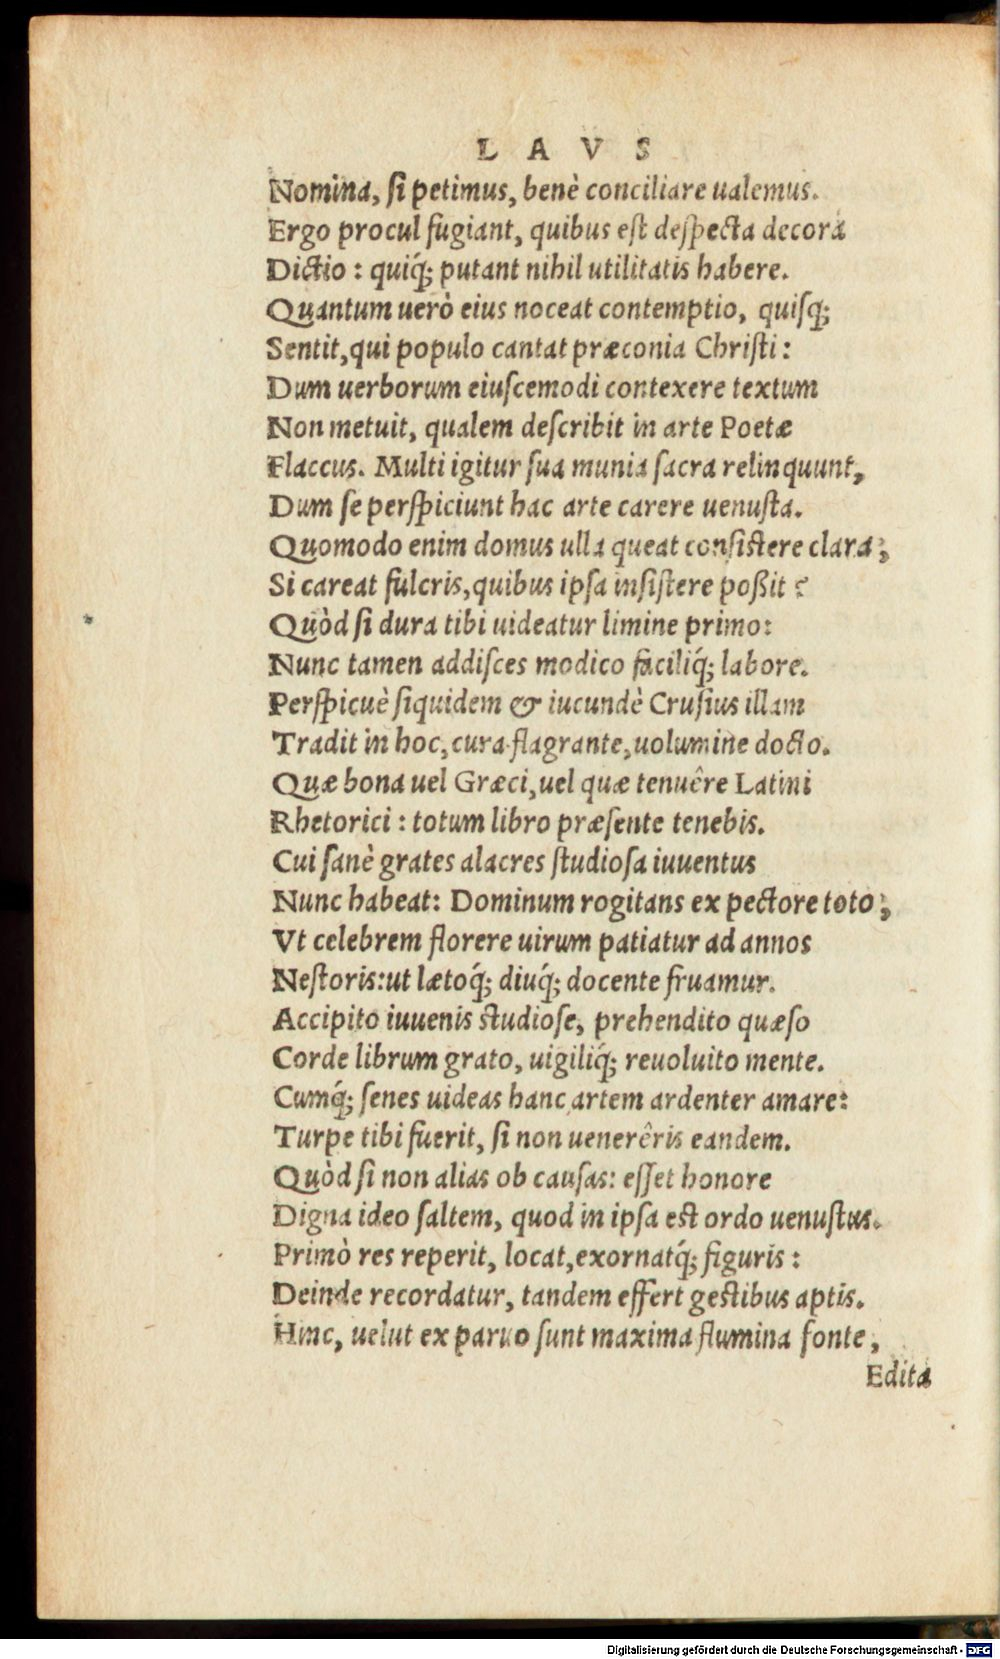 LAVS
Nomina, ſi petimus, benè conciliare ualemus.
Ergo procul fugiant, quibus eſt deſpecta decora
Dictio: quiq́; putant nihil utilitatis habere.
Quantum uerò eius noceat contemptio, quiſq;
Sentit, qui populo cantat præconia Chriſti:
Dum uerborum eiuſcemodi contexere textum
Non metuit, qualem deſcribit in arte Poetæ
Flaccus. Multi igitur ſua munia ſacra relinquunt,
Dum ſe perſpiciunt hac arte carere uenuſta.
Quomodo enim domus ulla queat conſiſtere clara;
Si careat fulcris, quibus ipſa inſiſtere poßit?
Quòd ſi dura tibi uideatur limine primo:
Nunc tamen addiſces modico faciliq́; labore.
Perſpicuè ſiquidem & iucundè Cruſius illam
Tradit in hoc, cura flagrante, uolumine docto.
Quæ bona uel Græci, uel quæ tenuêre Latini
Rhetorici: totum libro præſente tenebis.
Cui ſanè grates alacres ſtudioſa iuuentus
Nunc habeat: Dominum rogitans ex pectore toto;
Vt celebrem florere uirum patiatur ad annos
Neſtoris: ut lætoq́; diuq́; docente fruamur.
Accipito iuuenis ſtudioſe, prehendito quæſo
Corde librum grato, uigiliq́; reuoluito mente.
Cumq́; ſenes uideas hanc artem ardenter amare:
Turpe tibi fuerit, ſi non uenerêris eandem.
Quòd ſi non alias ob cauſas: eſſet honore
Digna ideo ſaltem, quod in ipſa eſt ordo uenuſtus.
Primò res reperit, locat, exornatq́; figuris:
Deinde recordatur, tandem effert geſtibus aptis.
Hinc, uelut ex paruo ſunt maxima flumina fonte,
Edita
Digitalisierung gefördert durch die Deutsche Forschungsgemeinschaft - DFG